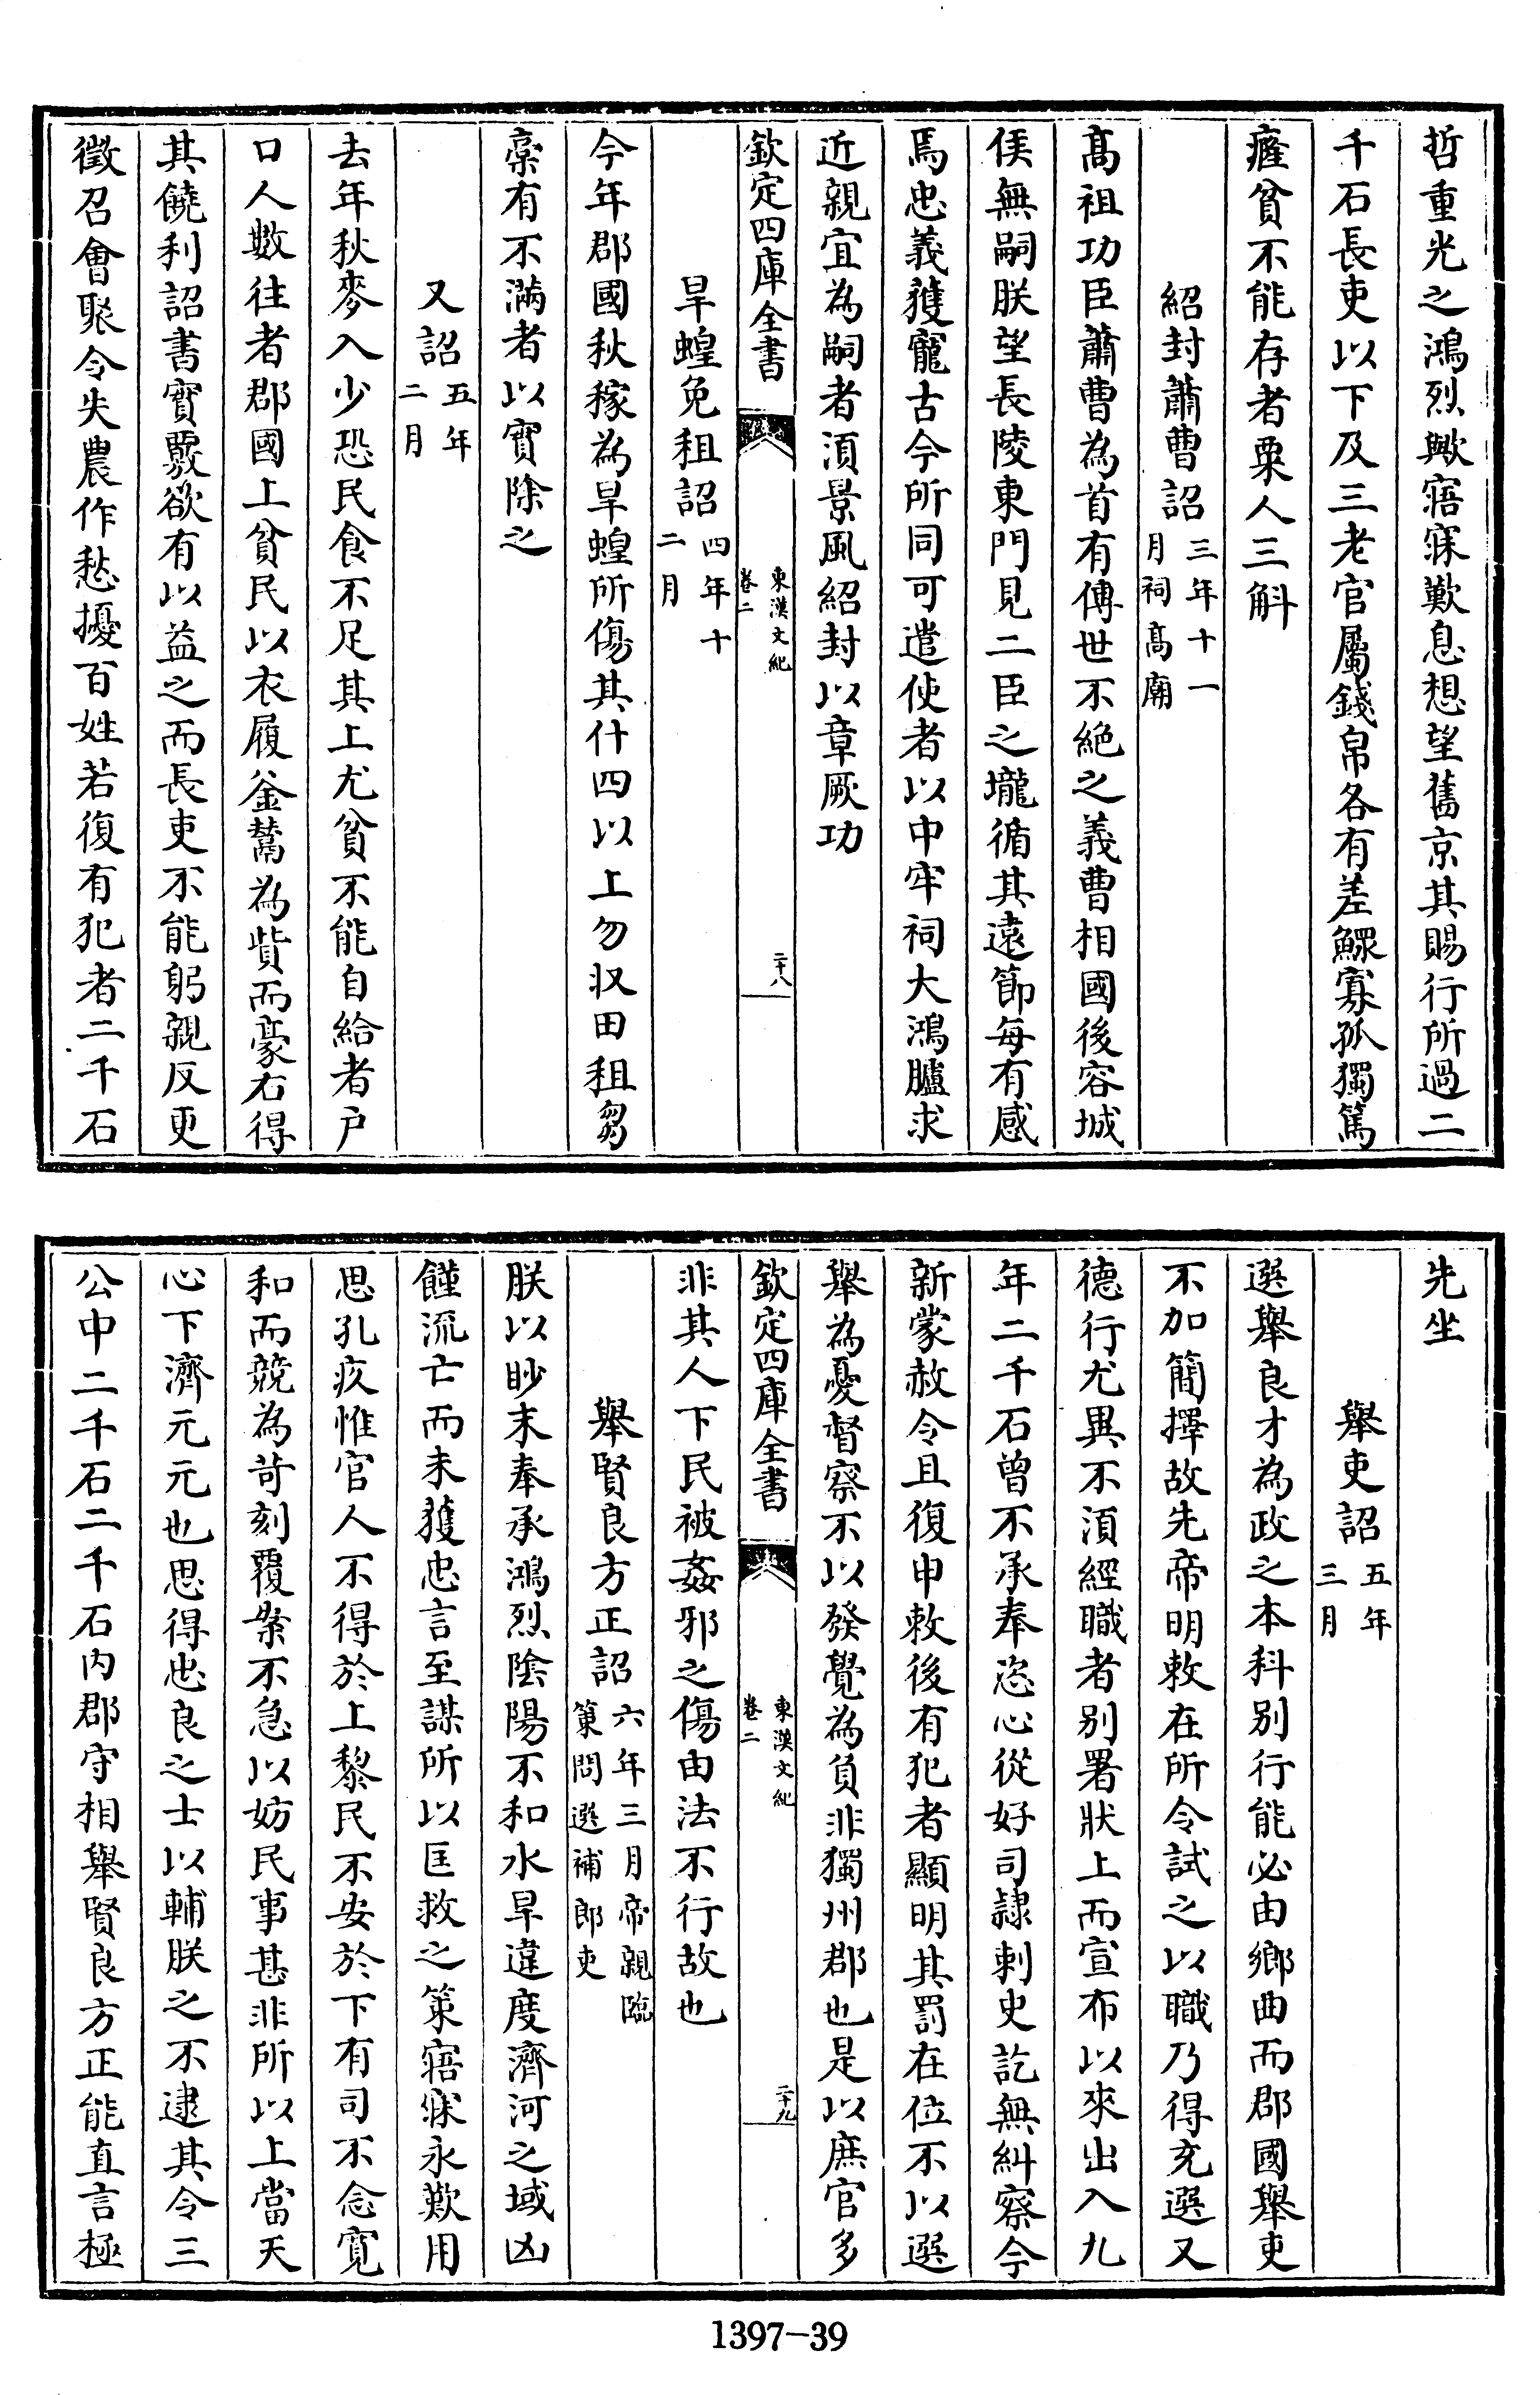 哲重光之鴻烈歟寤寐歎息想望舊京其賜行所過二
千石長吏以下及三老官屬錢帛各有差鰥寡孤獨篤
癃貧不能存者粟人三斛
紹封蕭曹詔三年十一月祠髙廟
髙祖功臣蕭曹為首有傳世不絶之義曹相國後容城
侯無嗣朕望長陵東門見二臣之壠循其逺節每有感
焉忠義獲寵古今所同可遣使者以中牢祠大鴻臚求
近親宜為嗣者湏景風紹封以章厥功
欽定四庫全書
東漢文紀
卷二
二十八
旱蝗免租詔四年十二月
今年郡國秋稼為旱蝗所傷其什四以上勿収田租芻
稾有不滿者以實除之
又詔五年二月
去年秋麥入少恐民食不足其上尤貧不能自給者户
口人數往者郡國上貧民以衣履釜鬵為貲而豪右得
其饒利詔書實覈欲有以益之而長吏不能躬親反更
徵召會聚令失農作愁擾百姓若復有犯者二千石
先坐
舉吏詔五年三月
選舉良才為政之本科别行能必由鄉曲而郡國舉吏
不加簡擇故先帝明敕在所令試之以職乃得充選又
德行尤異不湏經職者别署狀上而宣布以來出入九
年二千石曾不承奉恣心從好司隷刺史訖無糾察今
新蒙赦令且復申敕後有犯者顯明其罰在位不以選
舉為憂督察不以發覺為負非獨州郡也是以庶官多
欽定四庫全書
東漢文紀
卷二
二十九
非其人下民被姦邪之傷由法不行故也
舉賢良方正詔六年三月帝親臨策問選補郎吏
朕以眇末奉承鴻烈隂陽不和水旱違度濟河之域凶
饉流亡而未獲忠言至謀所以匡救之策寤寐永歎用
思孔疚惟官人不得於上黎民不安於下有司不念寛
和而競為苛刻覆案不急以妨民事甚非所以上當天
心下濟元元也思得忠良之士以輔朕之不逮其令三
公中二千石二千石内郡守相舉賢良方正能直言極
1397—39